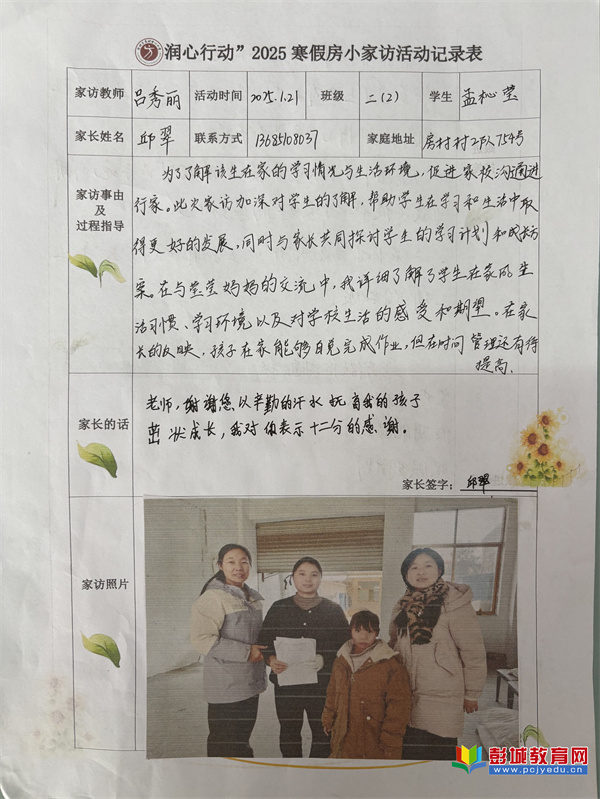 润心行动”2025寒假房小家访活动记录表
家访教师 吕秀丽 活动时间 2025.1.21 班级 二(2) 学生 孟杺莹
家长姓名 邱翠 联系方式 13685108037 家庭地址 房村村2队754号
家访事由
及
过程指导
为了了解该生在家的学习情况与生活环境，促进家校沟通进
行家。此次家访加深对学生的了解，帮助学生在学习和生活中取
得更好的发展。同时与家长共同探讨学生的学习计划和成长方
案。在与莹莹妈妈的交流中，我详细了解了学生在家的生
活习惯、学习环境以及对学校生活的感受和期望。在家
长的反映，孩子在家能够自觉完成作业，但在时间管理还有待
提高.
家长的话
老师，谢谢您以辛勤的汗水抚育我的孩子
茁壮成长，我对你表示十二分的感谢。
家长签字：邱翠
家访照片
彭城教育网
www.pcjyedu.cn